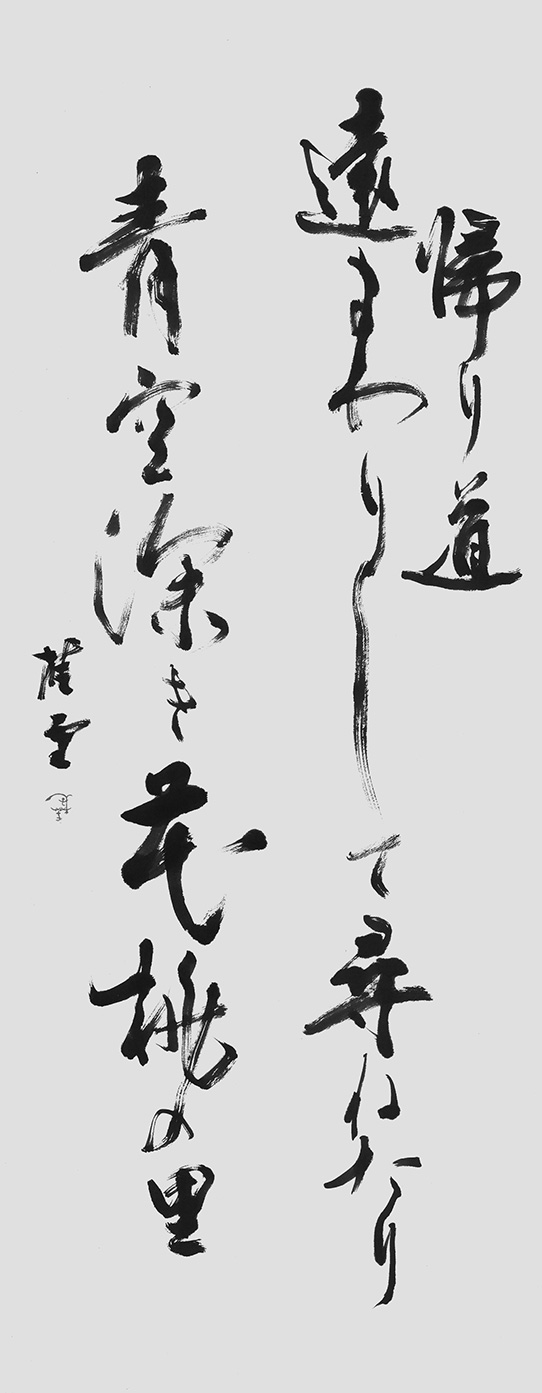 帰り道
遠まわりして尋ねたり
青空深き花桃の里
桂雲